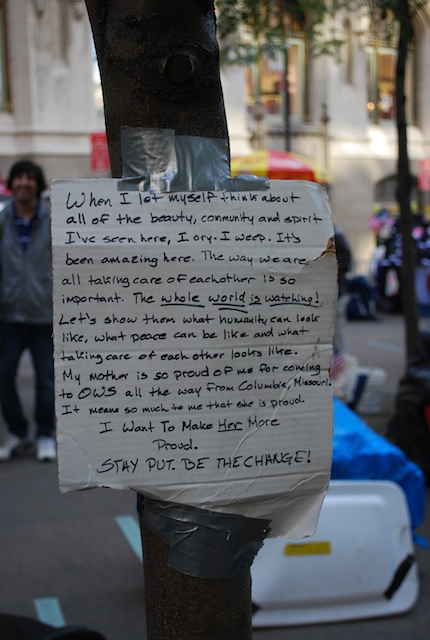 When I let myself think about
all of the beauty, community and spirit
I've seen here, I cry. I weep. It's
been amazing here. The way we are
all taking care of eachother is so
important. The whole world is watching!
Let's show them what humanity can look
like, what peace can be like and what
taking care of each other looks like.
My mother is so proud of me for coming
to OWS all the way from Columbia, Missouri.
It means so much to me that she is proud.
I Want To Make Her More
Proud.
STAY PUT. BE THE CHANGE!